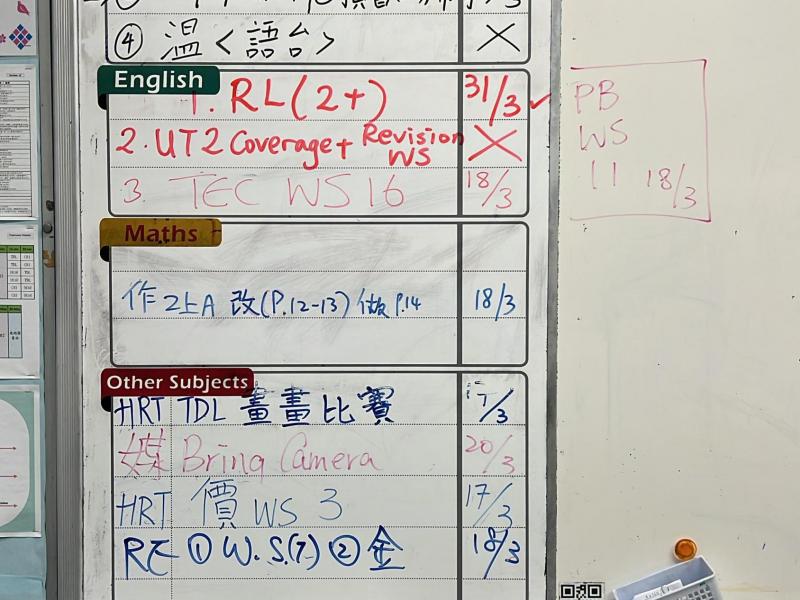 ④ 温<語台> ×
English
1. RL(2+) 31/3 ✓
2. UT2 Coverage + Revision WS ×
3. TEC WS 16 18/3
PB
WS
11 18/3
Maths
作2上A 改(P.12-13) 做P.14 18/3
Other Subjects
HRT TDL 畫畫比賽 17/3
媒 Bring Camera 20/3
HRT 價 WS 3 17/3
RE ① W.S.(7) ② 金 18/3